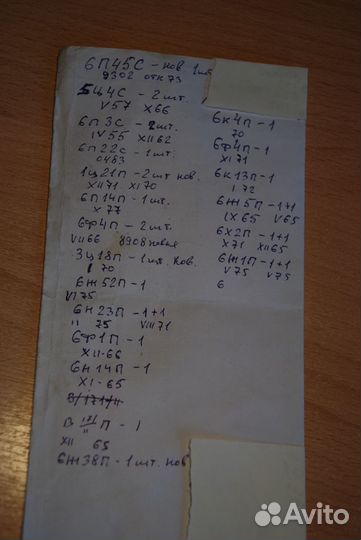 6П45С - нов 1шт
9302 отк 73
5Ц4С - 2шт.
V57 X66
6П3С - 2шт.
IV55 XII62
6П22С - 1шт.
0483
1Ц21П - 2шт нов
XII71 XI70
6П14П - 1шт.
X77
6Ф4П - 2шт.
VII66 8908 новые
3Ц18П - 1шт. нов.
I 70
6Ж52П - 1
VI75
6Н23П - 1+1
II 75 VIII71
6Ф1П - 1
XII-66
6Н14П - 1
XI-65
В П - 1
XII 65
6Ж38П - 1шт. нов
6К4П - 1
70
6Ф4П - 1
XI71
6К13П - 1
I 72
6Ж5П - 1+1
IX65 V65
6Х2П - 1+1
X71 XII65
6Ж1П - 1+1
V75 V75
6
Avito